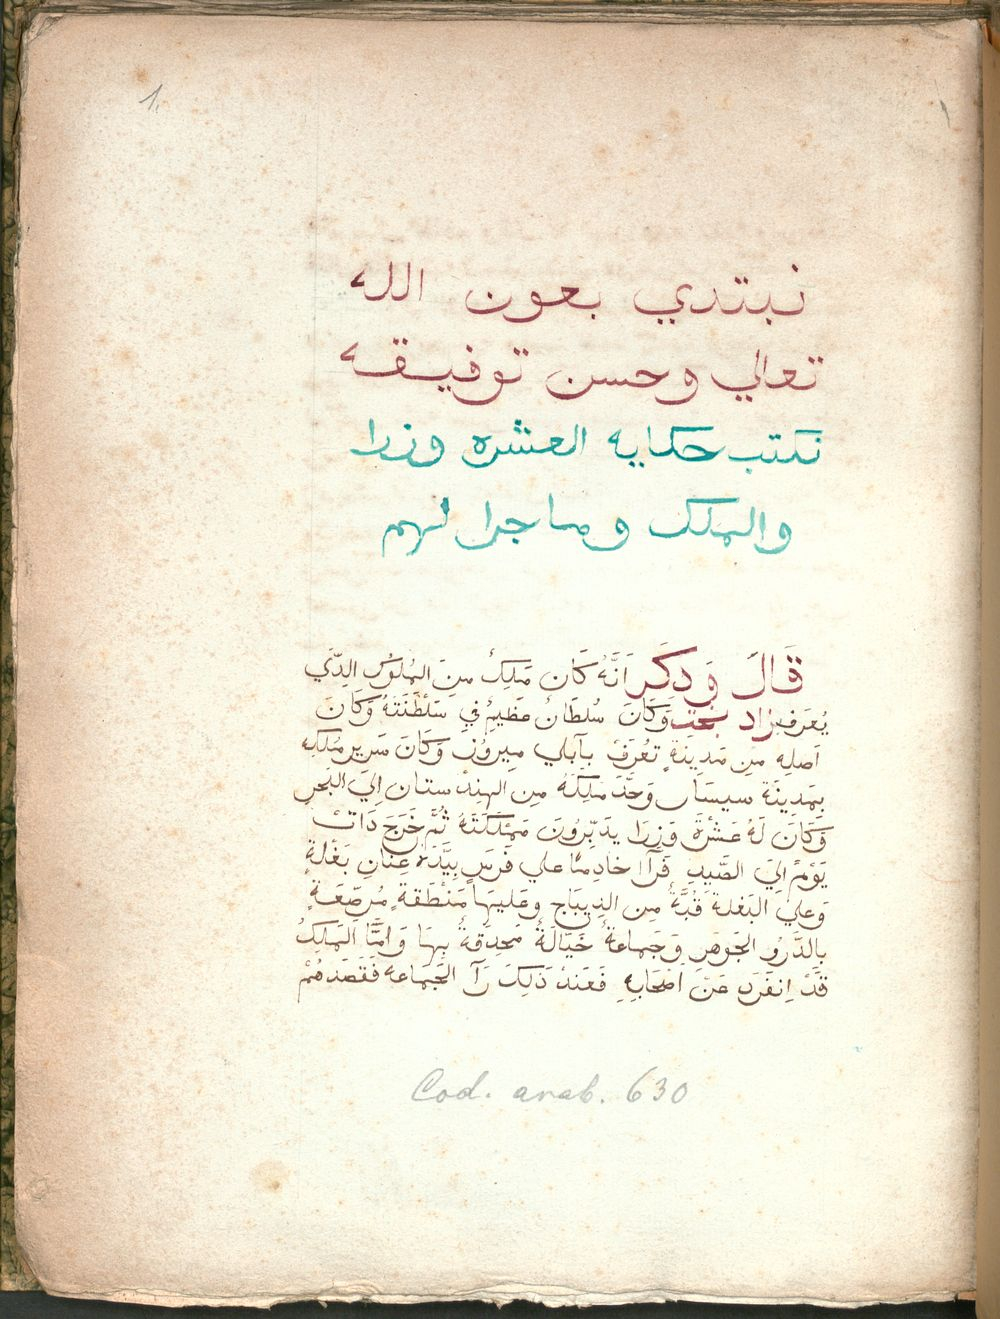 1.
نبتدي بعون الله
تعالي وحسن توفيقه
نكتب حكايه العشره وزرا
والملك وما جرا لهم
قَالَ وَدكَر اَنَّهُ كَان مَلِكٌ مِنَ المُلوُك الدِّي
يُعَرَف بزاد بخت وَكَانَ سُلطَانٌ عَظِيمٌ فِي سَلْطَنَتَهُ وَكَانَ
اَصلِه مِن مَدِينَةٍ تعُرَفْ بِاَبلي ميروز وَكَانَ سَرِير مُلكِه
بِمَدينَة سيسَان وَحَّدَ مَلِكَهُ مِن الهِندْ ستان اِليَ البَحر
وَكَانَ لَهُ عَشْرَةَ وَزِرَا يدَبِّرُونَ مَمْلَكَتَهُ ثُمَّ خَرَجَ دَات
يَوْمً اِليَ الصَّيدِ فَرَاَا خادِمًا علي فَرَسٍ بِيَّدَهُ عِنَانِ بَغْلَةٍ
وَعلي البَغلَة قُبَّةٌ مِن الدِيبَاج وعَليهَا مَنْطَقةٍ مُرصَّعَةٍ
بالدَّرُو الجَوهَر وَجَماعةٌ خَيَالَةٌ مَحدِقَةٌ بِهَا وَامَّا المَلِكُ
قَدْ اِنفَرَد عَنْ اَصْحَابِهِ فَعَندْ ذَلِكَ رَاَ الجَمَاعه فَقَصَدهُمْ
Cod. arab. 630